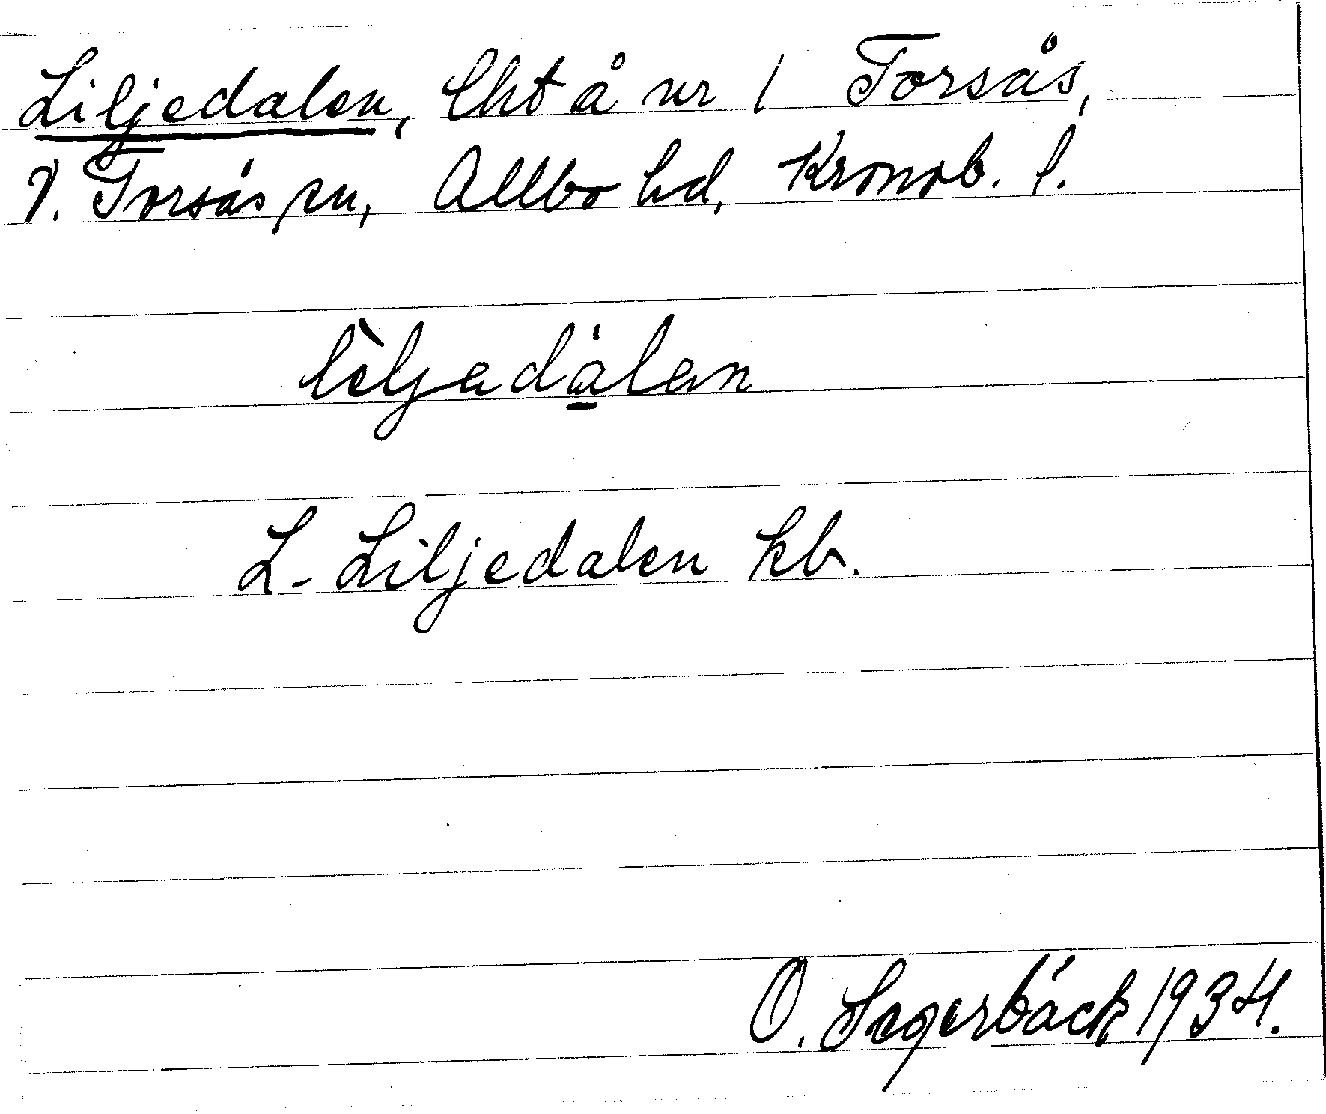 Liljedalen, lht å nr 1 Torsås,
V. Torsås sn, Allbo hd, Kronob. l.
lìljedálen
L- Liljedalen kb.
O. Sagerbäck 1934.